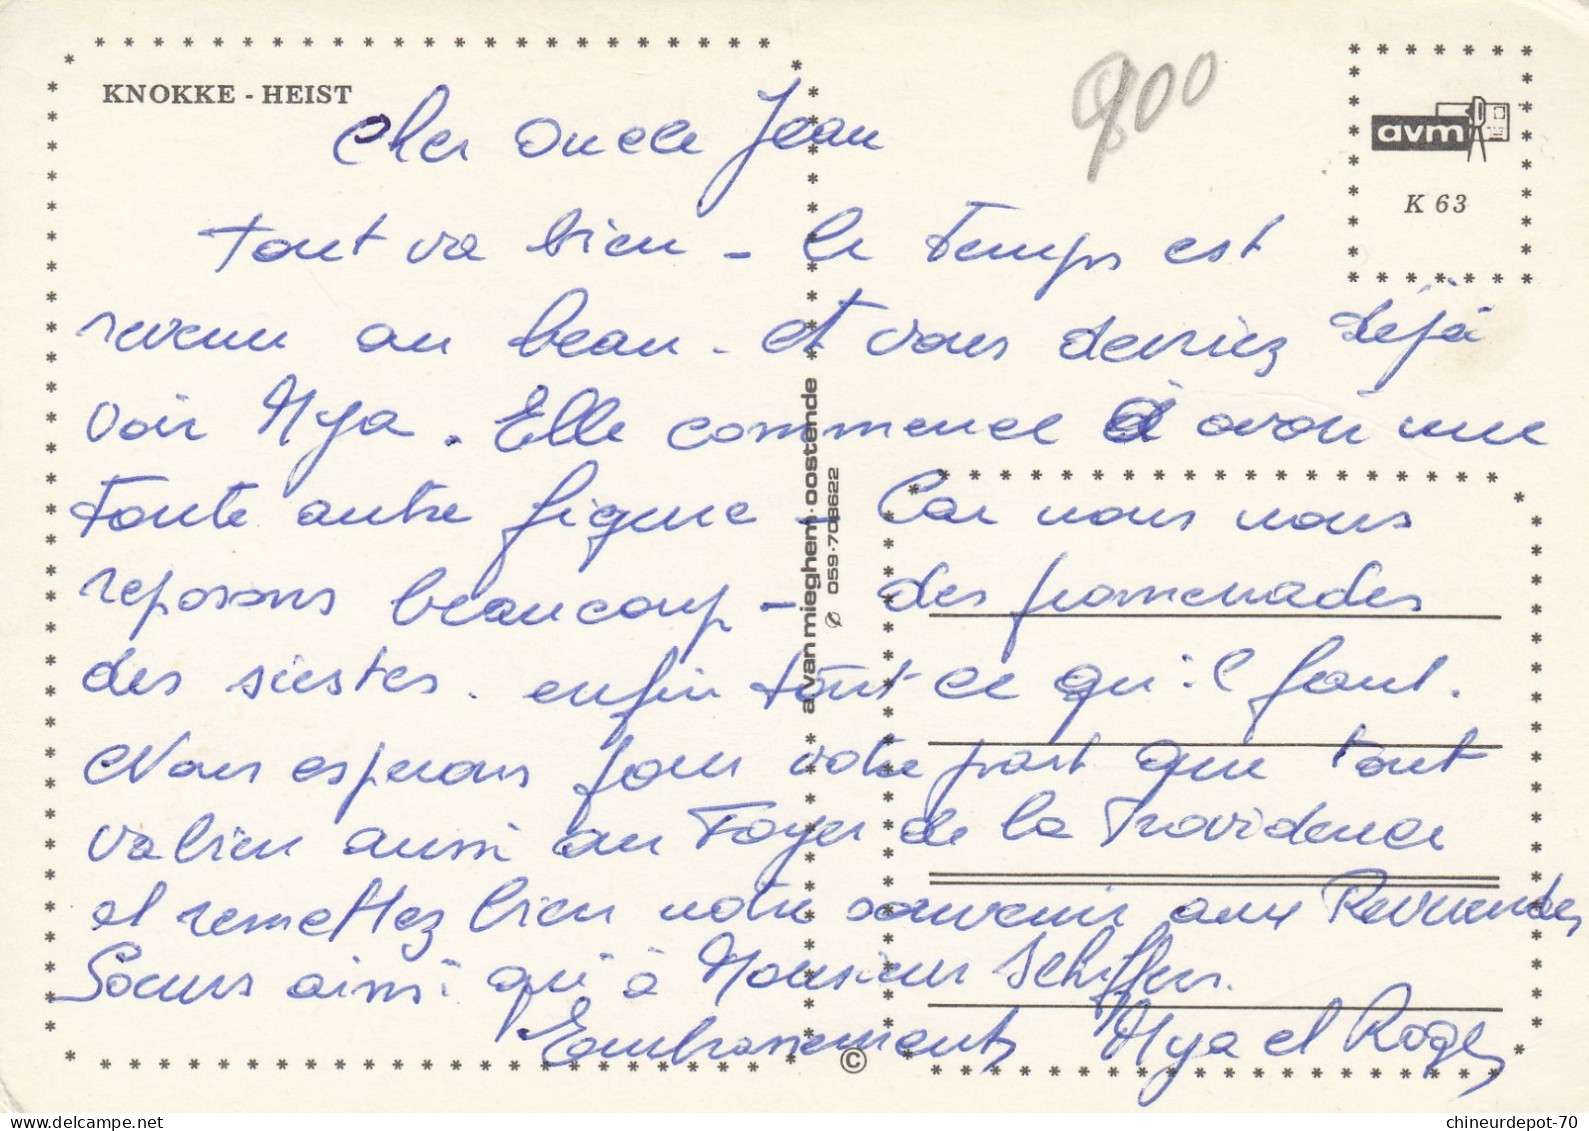 KNOKKE - HEIST
900
avm
K 63
Cher Oncle Jean
Tout va bien - le Temps est
revenu au beau. et vous devriez déjà
voir Mya. Elle commence à avoir une
toute autre figure - Car nous nous
reposons beaucoup - des promenades
des siestes. enfin tout ce qu'il faut.
Nous esperons pour votre part que tout
va bien aussi au Foyer de la Providence
et remettez bien notre souvenir aux Reverendes
Soeurs ainsi qu'à Monsieur Schiffers.
Embrassements Mya et Roger
a. van mieghem.oostende
059-708622
©
chineurdepot-70